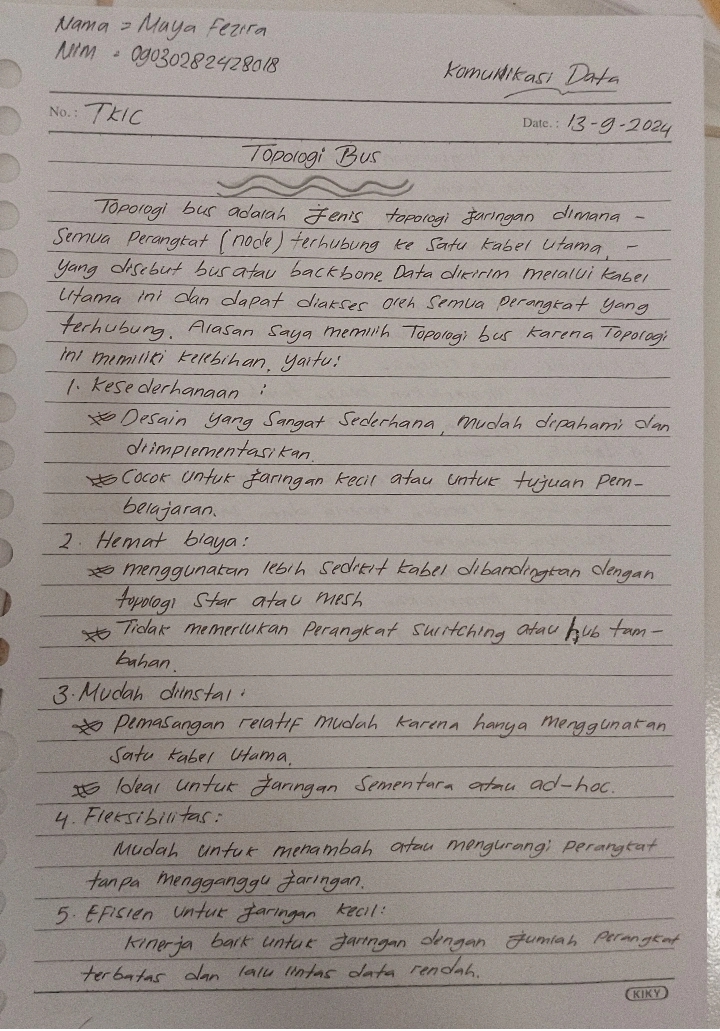 Nama = Maya Fezira
NIM = 09030282428018
Komunikasi Data
No.: TK1C
Date.: 13-9-2024
Topologi Bus
Topologi bus adalah jenis topologi jaringan dimana -
Semua Perangkat (node) terhubung ke satu kabel utama, -
yang disebut bus atau backbone. Data dikirim melalui kabel
utama ini dan dapat diakses oleh semua perangkat yang
terhubung. Alasan saya memilih Topologi bus karena Topologi
ini memiliki kelebihan, yaitu:
1. Kesederhanaan :
* Desain yang sangat sederhana, mudah dipahami dan
diimplementasikan.
* Cocok untuk jaringan kecil atau untuk tujuan pem-
belajaran.
2. Hemat biaya:
* menggunakan lebih sedikit kabel dibandingkan dengan
topologi Star atau Mesh
* Tidak memerlukan perangkat switching atau hub tam-
bahan.
3. Mudah diinstal:
* Pemasangan relatif mudah karena hanya menggunakan
satu kabel utama.
* Ideal untuk jaringan sementara atau ad-hoc.
4. Fleksibilitas:
Mudah untuk menambah atau mengurangi perangkat
tanpa mengganggu jaringan.
5. Efisien untuk jaringan kecil:
Kinerja baik untuk jaringan dengan jumlah perangkat
terbatas dan lalu lintas data rendah.
KIKY